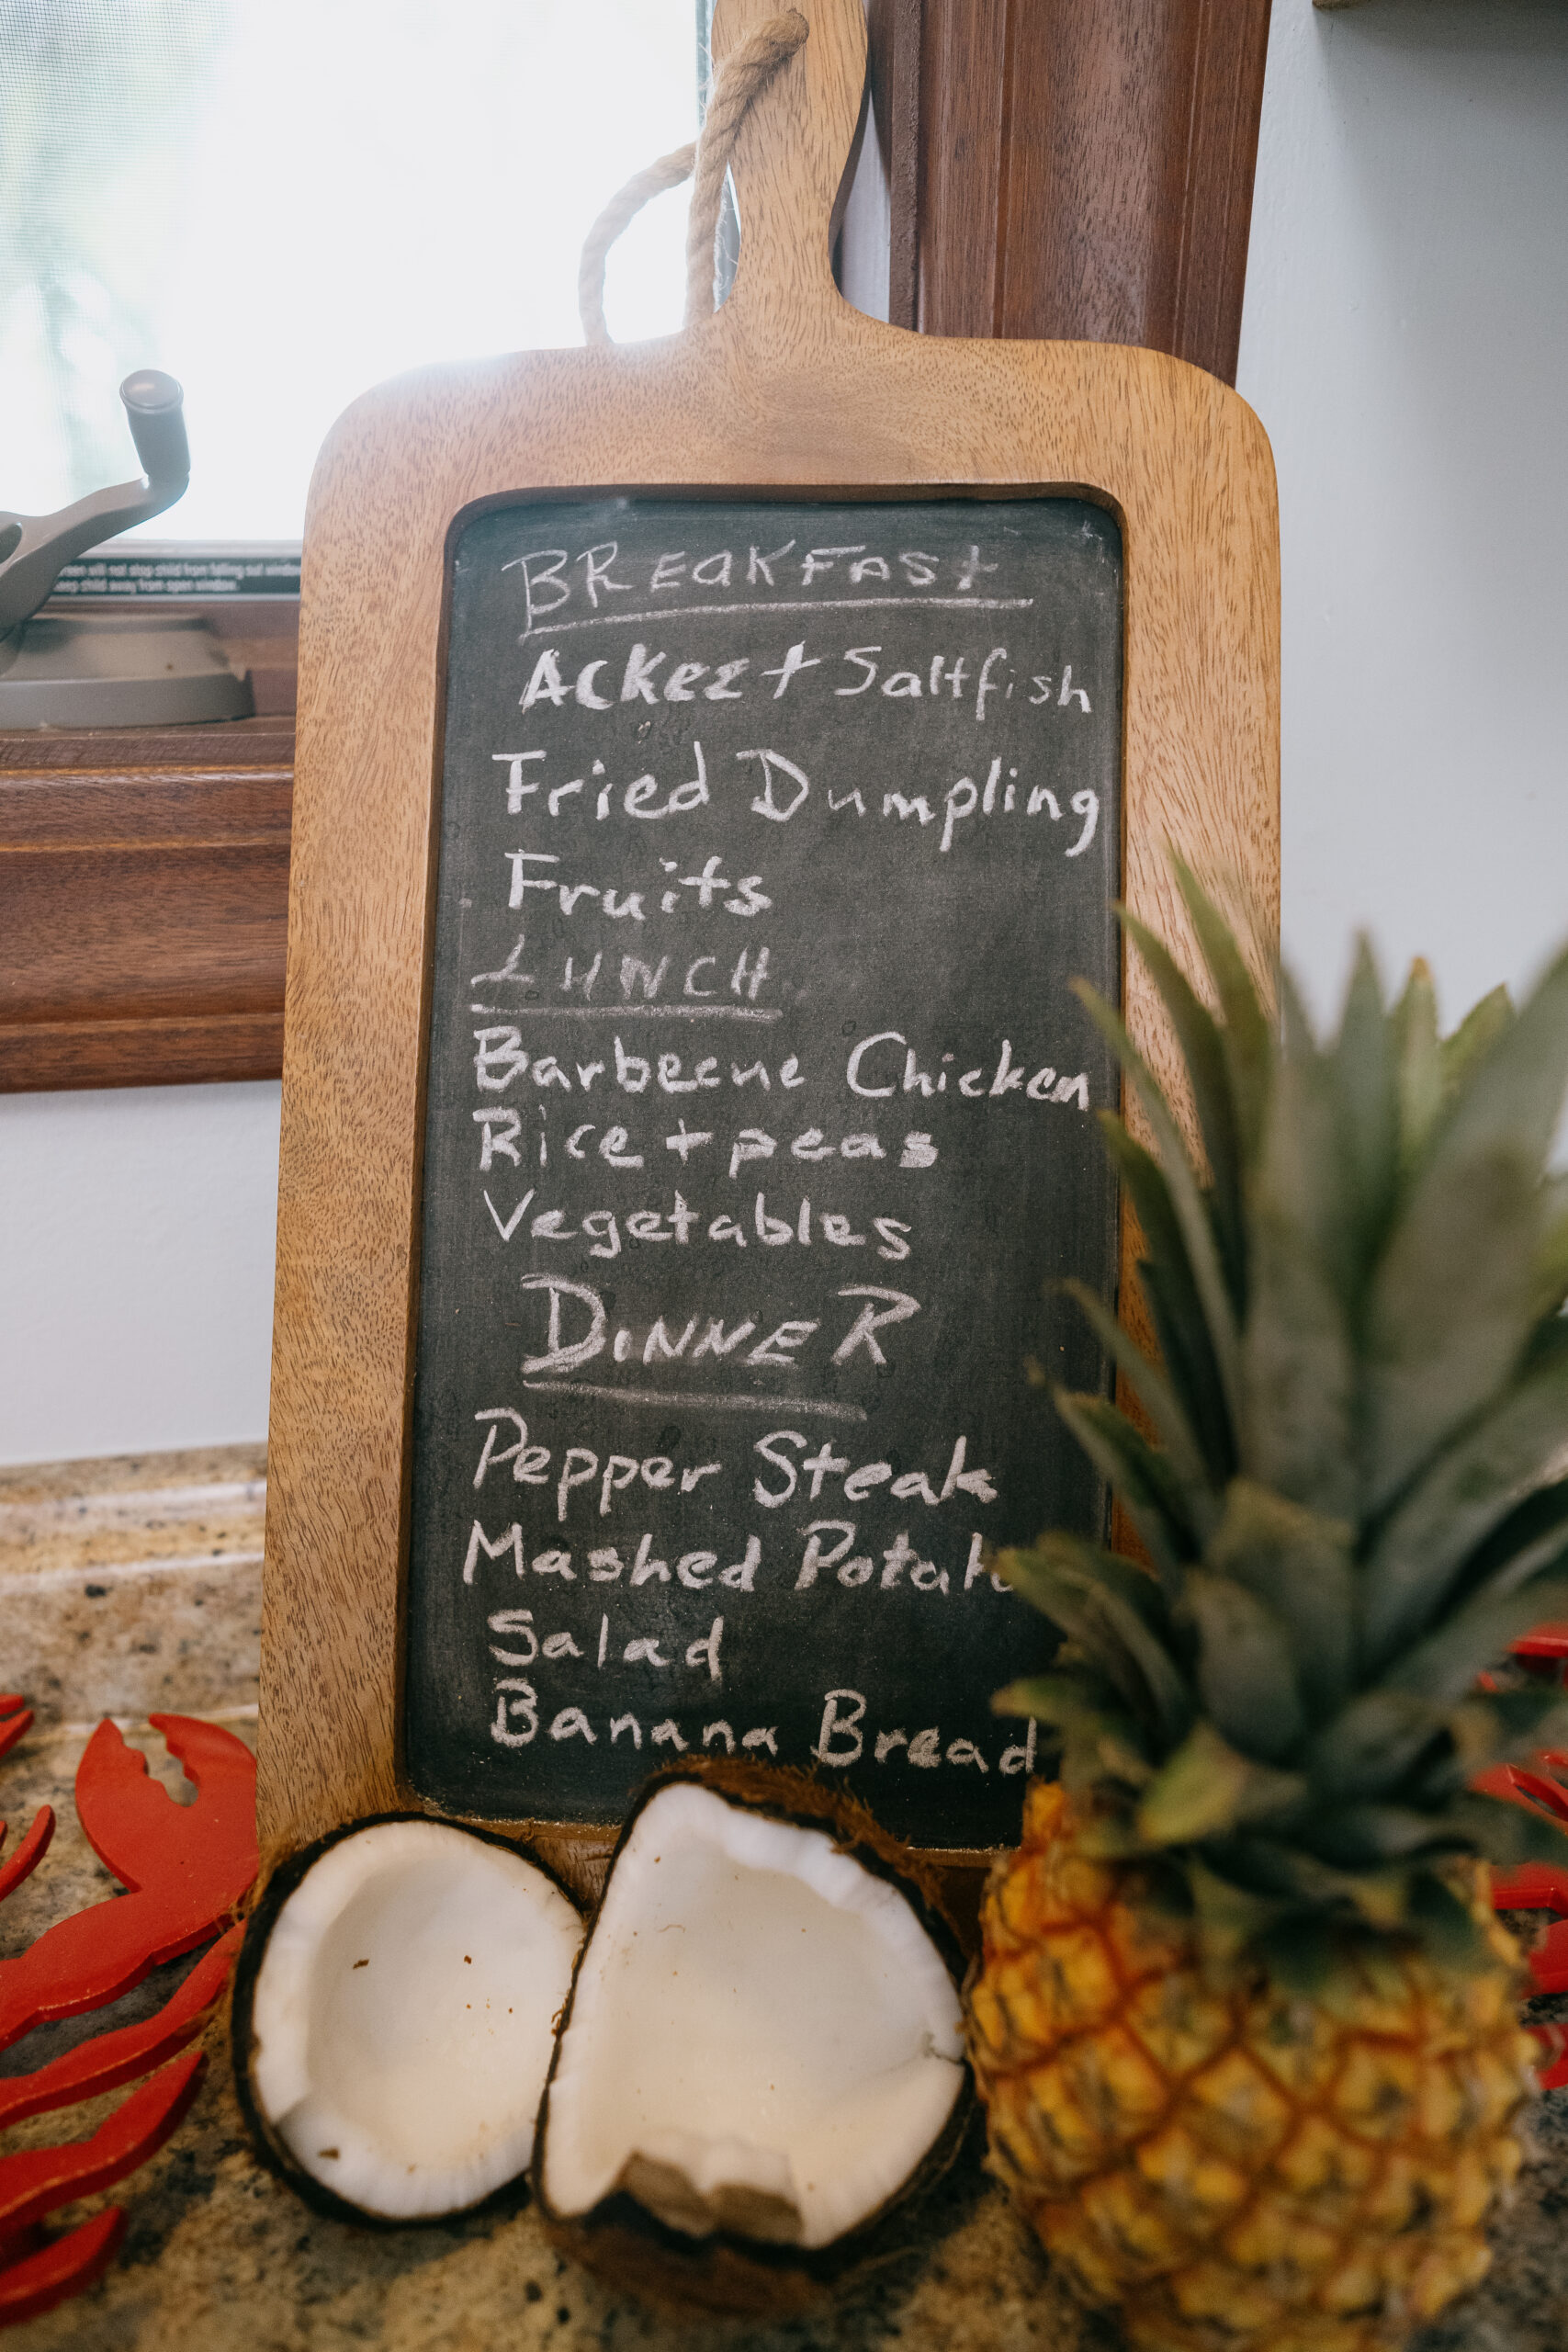 screen will not stop child from falling out window
keep child away from open window.
BREAKFAST
Ackee + Saltfish
Fried Dumpling
Fruits
LUNCH
Barbecue Chicken
Rice + peas
Vegetables
DINNER
Pepper Steak
Mashed Potato
Salad
Banana Bread